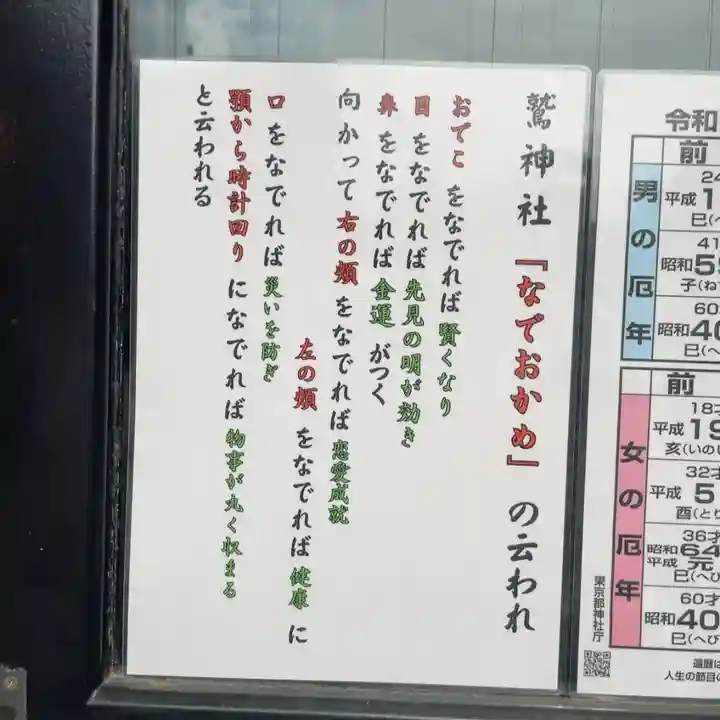 鷲神社『なでおかめ』の云われ
おでこをなでれば賢くなり
目をなでれば先見の明が効き
鼻をなでれば金運がつく
向かって右の頬をなでれば恋愛成就
左の頬をなでれば健康に
口をなでれば災いを防ぎ
顎から時計回りになでれば物事が丸く収まる
と云われる
令和
男の厄年
前
24
平成1
巳(へ
41
昭和5
子(ね
60
昭和40
巳(へ
女の厄年
前
18才
平成19
亥(いのし
32才
平成5
酉(とり
36才
昭和64
平成元
巳(へび
60才
昭和40
巳(へび
東京都神社庁
還暦は
人生の節目の